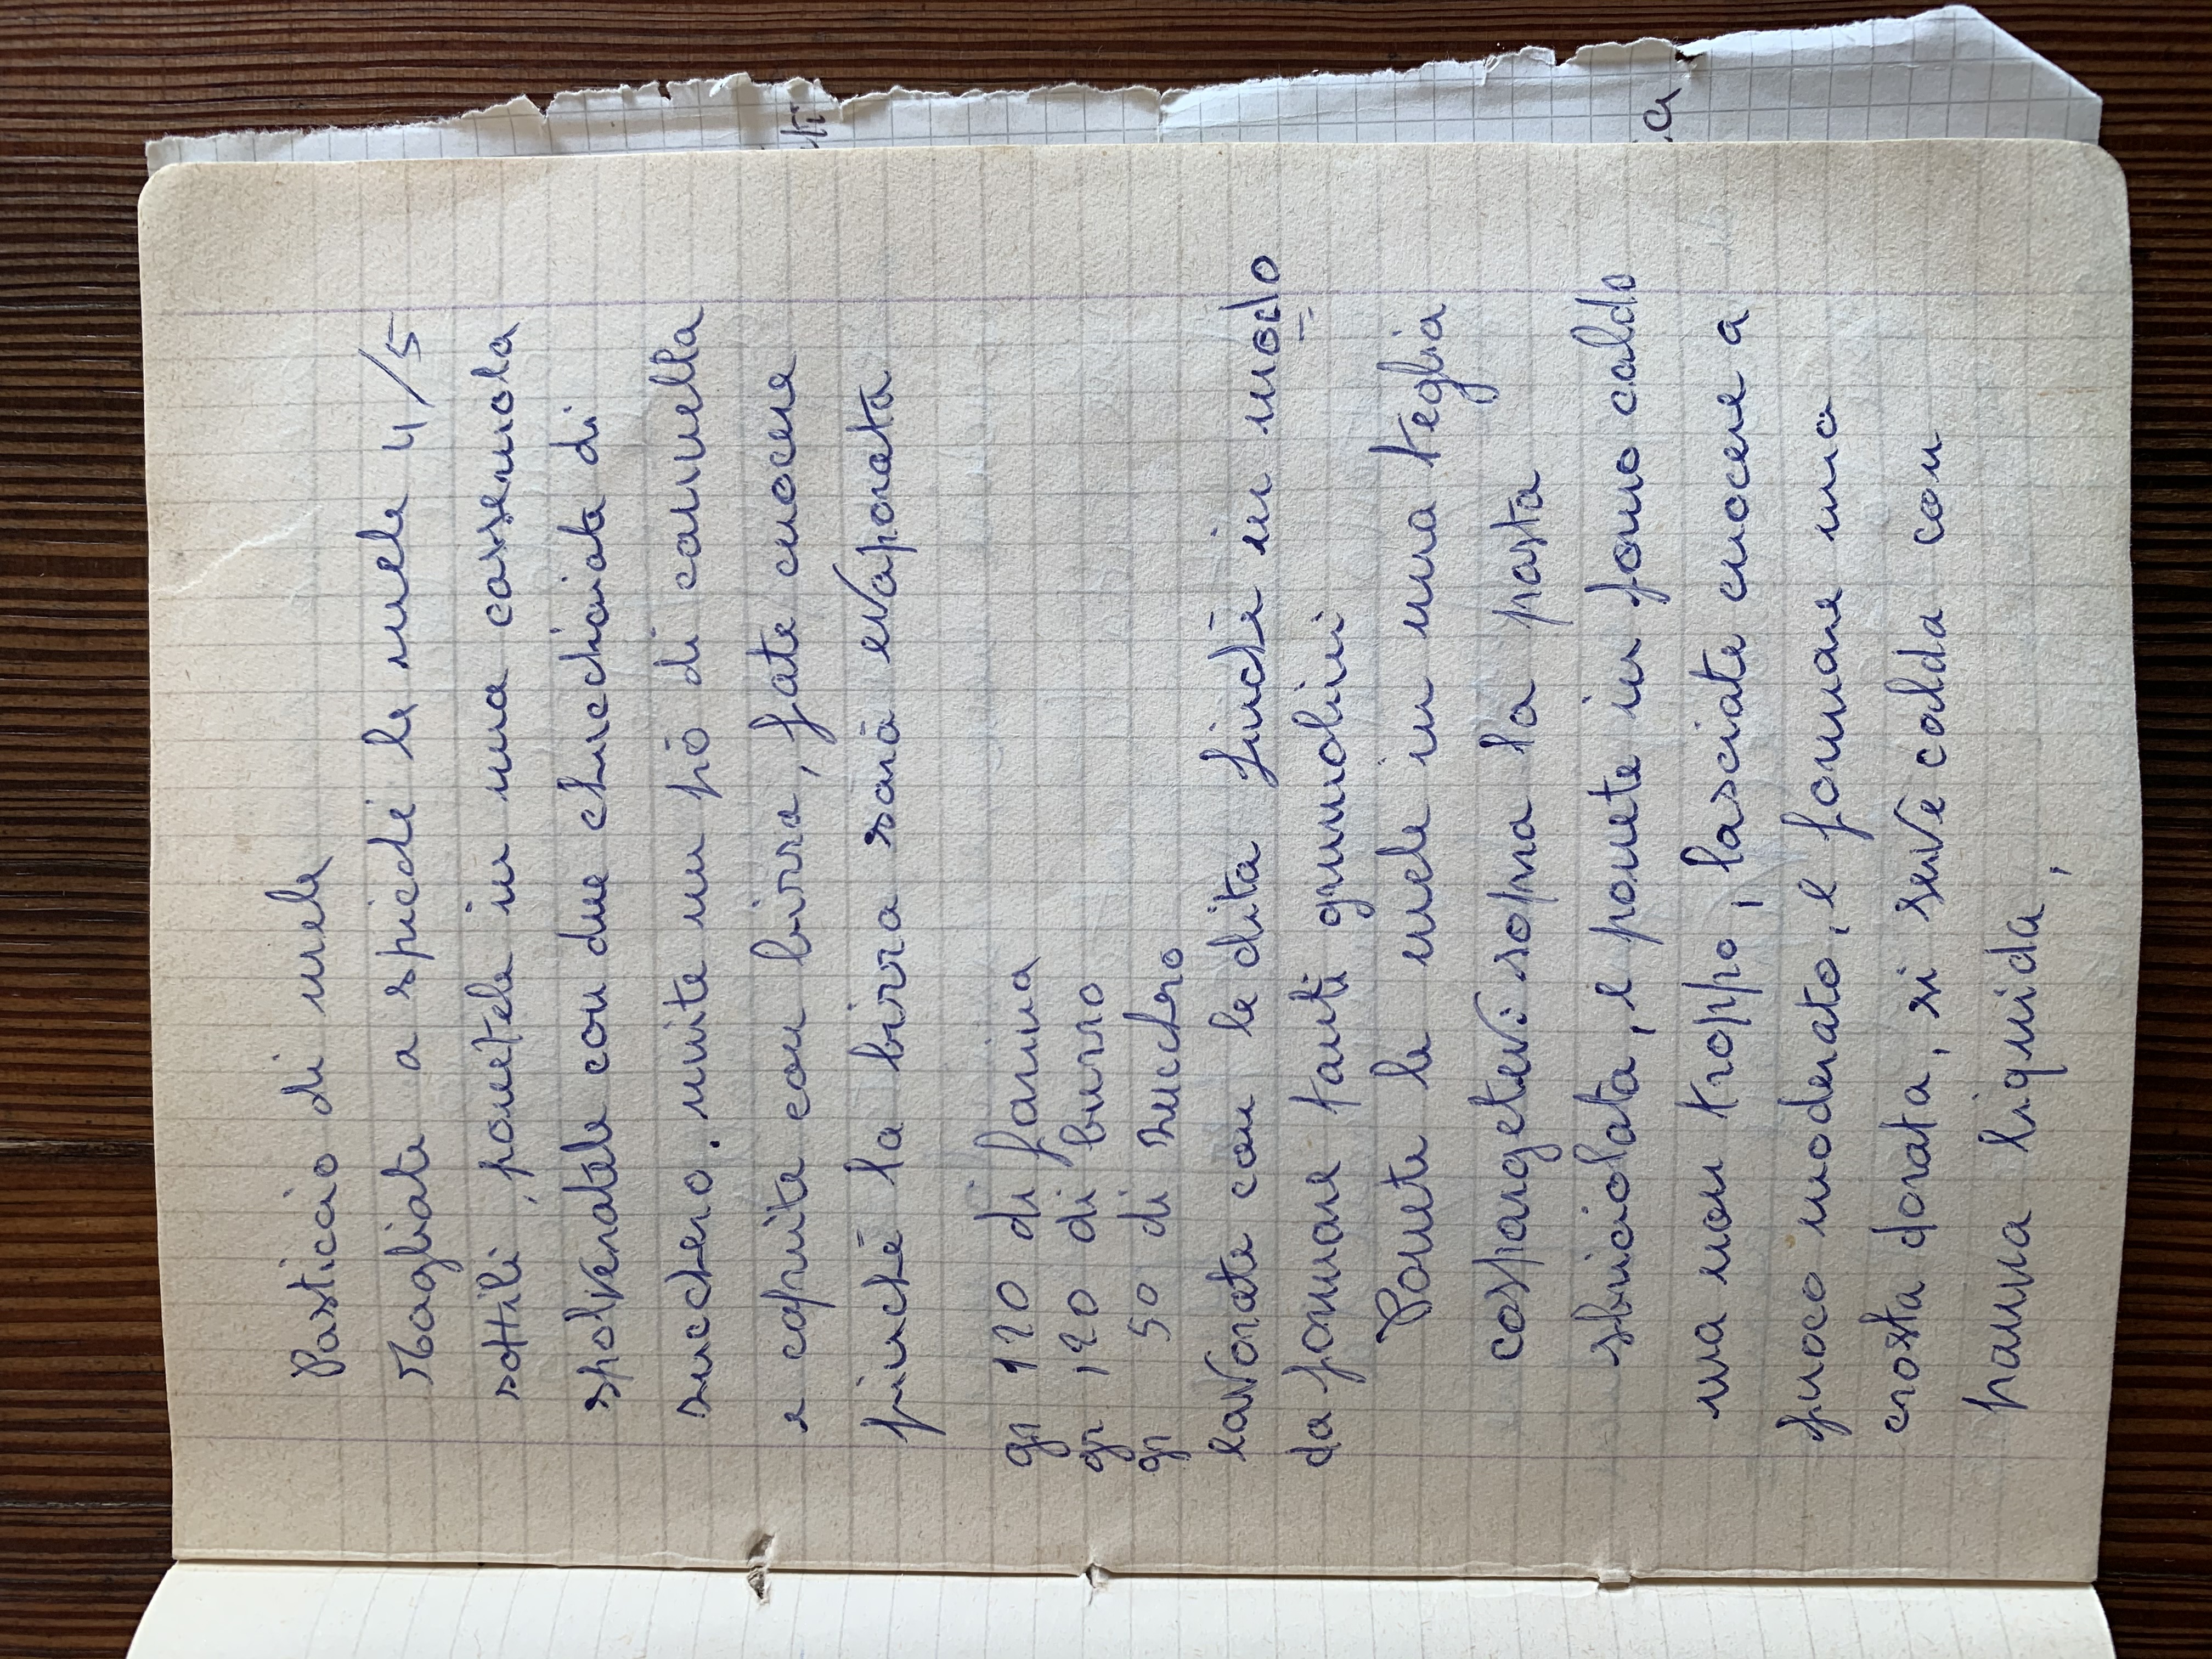 Pasticcio di mele
Tagliate a spicchi le mele 4/5
sottili, ponetele in una casseruola
spolveratele con due chucchiaiate di
zucchero. unite un pò di cannella
e coprite con birra, fate cuocere
finchè la birra sarà evaporata
gr 120 di farina
gr 120 di burro
gr 50 di zucchero
lavorate con le dita finchè in modo
da formare tanti grumolini
Ponete le mele in una teglia
cospargetevi sopra la pasta
sbriciolata, e ponete in forno caldo
ma non troppo, lasciate cuocere a
fuoco moderato, e formare una
crosta dorata, si serve calda con
panna liquida,